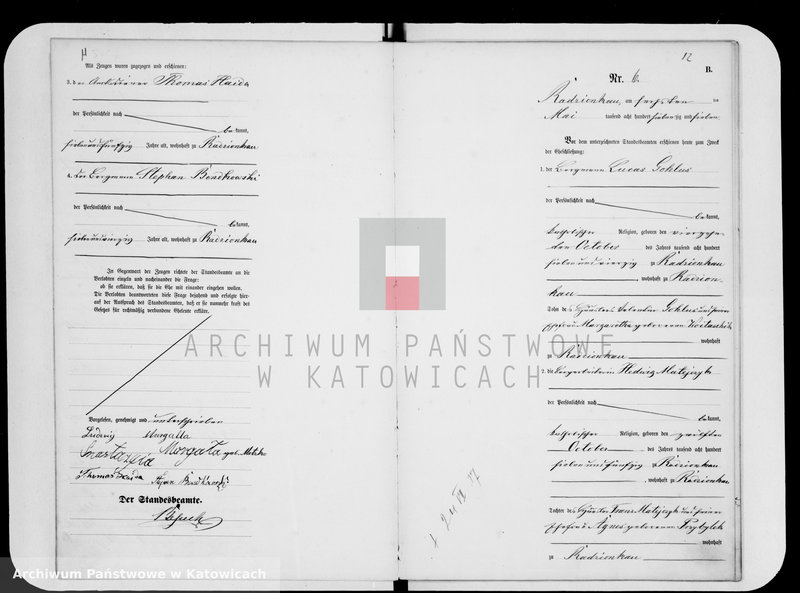 Als Zeugen waren zugezogen und erschienen:
3. der Thomas Haida
der Persönlichkeit nach
bekannt,
siebenundfünfzig Jahre alt, wohnhaft zu Radzionkau
4. der Bergmann Stephan Bendkowski
der Persönlichkeit nach
bekannt,
Jahre alt, wohnhaft zu Radzionkau
In Gegenwart der Zeugen richtete der Standesbeamte an die
Verlobten einzeln und nacheinander die Frage:
ob sie erklären, daß sie die Ehe mit einander eingehen wollen.
Die Verlobten beantworteten diese Frage bejahend und erfolgte hier-
auf der Ausspruch des Standesbeamten, daß er sie nunmehr kraft des
Gesetzes für rechtmäßig verbundene Eheleute erkläre.
Vorgelesen, genehmigt und unterschrieben
Ludwig Morgalla
Anastazyia Morgała
Thomas Haida
Der Standesbeamte.
12
B.
Nr. 6.
Radzionkau, am sechsten
Mai tausend acht hundert siebenzig und sieben
Vor dem unterzeichneten Standesbeamten erschienen heute zum Zweck
der Eheschließung:
1. der Bergmann Lucas Goklus
der Persönlichkeit nach
bekannt,
katholischer Religion, geboren den vierzehn
ten October des Jahres tausend acht hundert
siebenundvierzig zu Radzionkau
, wohnhaft zu Radzion-
kau
Sohn des Häuslers Valentin Goklus und seiner
Ehefrau Margaretha geborenen
wohnhaft
zu Radzionkau
2. die Hedwig Matejczyk
der Persönlichkeit nach
bekannt,
katholischer Religion, geboren den zwölften
October des Jahres tausend acht hundert
siebenundfünfzig zu Radzionkau
, wohnhaft zu Radzionkau
Tochter des Häuslers Franz Matejczyk und seiner
Ehefrau Agnes geborenen Przybylek
wohnhaft
zu Radzionkau
ARCHIWUM PAŃSTWOWE
W KATOWICACH
Archiwum Państwowe w Katowicach